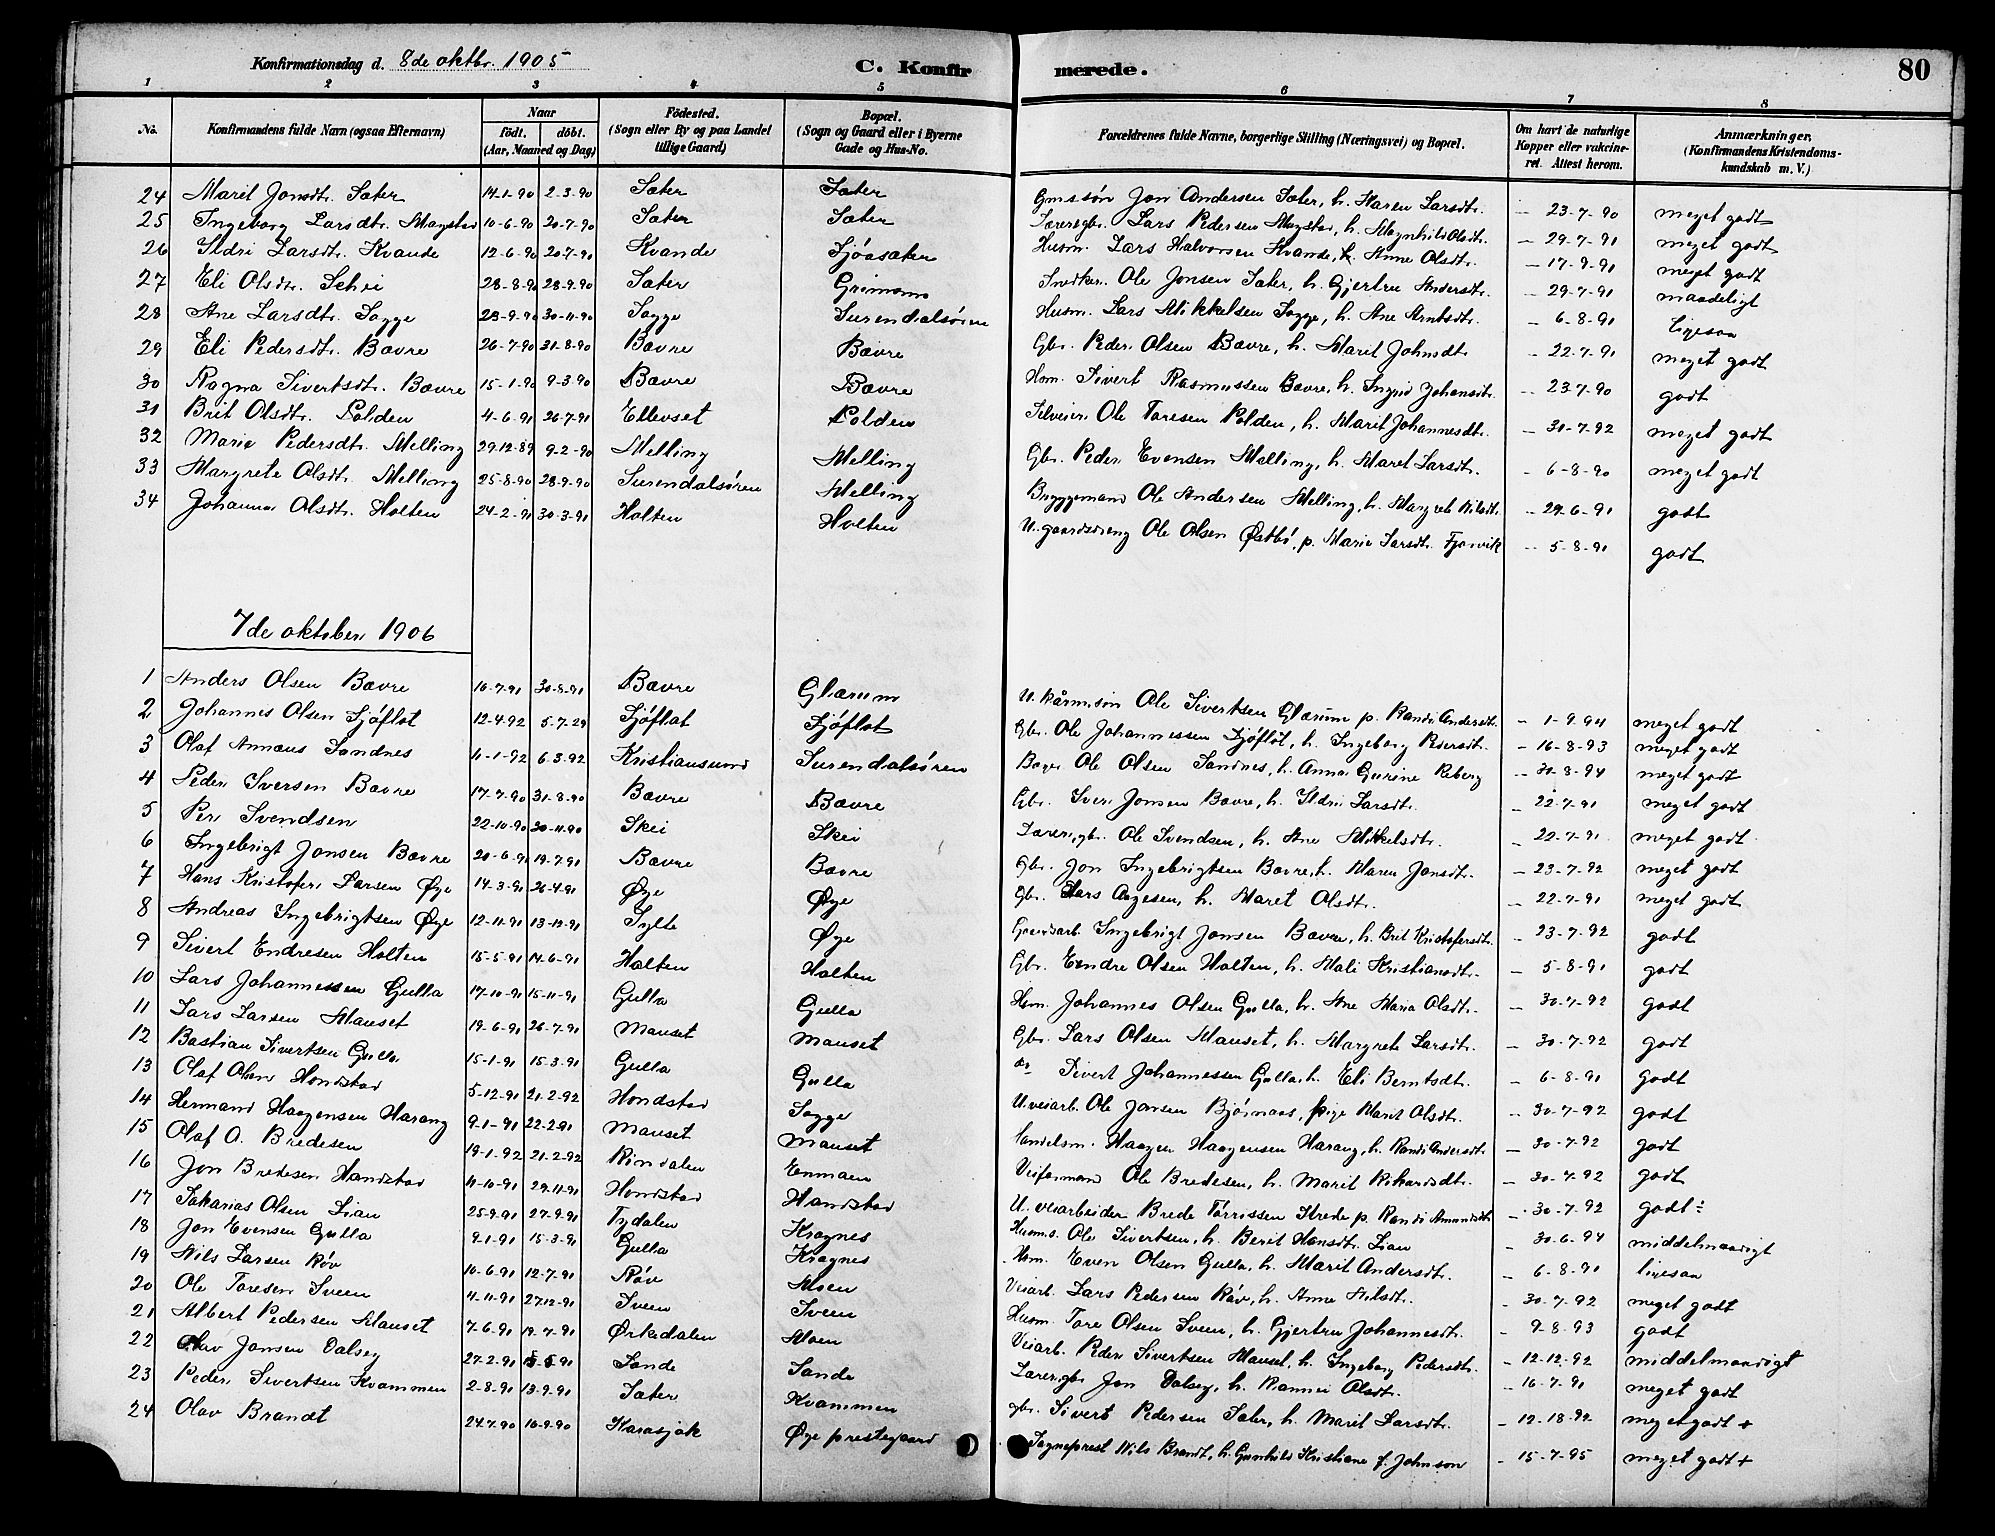 Konfirmationsdag d. 8de oktbr. 1905
C. Konfirmerede.
80
1 2 3 4 5 6 7 8
No. Konfirmandens fulde Navn (ogsaa Efternavn) Naar födt. döbt. (Aar, Maaned og Dag) Födested. (Sogn eller By og paa Landet tillige Gaard) Bopæl. (Sogn og Gaard eller i Byerne Gade og Hus-No. Forældrenes fulde Navne, borgerlige Stilling (Næringsvei) og Bopæl. Om havt de naturlige Kopper eller vakcineret. Attest herom. Anmærkninger, (Konfirmandens Kristendomskundskab m. V.)
24 Marit Jonsdtr. Sæter 14-1-90 2-3-90 Sæter Sæter Jon Andersen Sæter, h. Maren Larsdtr. - 23-7-90 meget godt
25 Ingeborg Larsdtr. Mogstad 10-6-90 20-7-90 Sæter Sæter Lars Pedersen Mogstad, h. Magnhild Olsdtr. - 29-7-91 meget godt
26 Ildri Larsdtr. Kvande 12-6-90 20-7-90 Kvande Sjöasæter Husm. Lars Halvorsen Kvande, h. Anne Olsdtr. - 17-9-91 meget godt
27 Eli Olsdtr. Schei 28-8-90 28-9-90 Sæter Grimsmo Snedker. Ole Jonsen Sæter, h. Gjertru Andersdtr. - 29-7-91 maadeligt
28 Ane Larsdtr. Sogge 23-9-90 30-11-90 Sogge Surendalsören Husm. Lars Mikkelsen Sogge, h. Ane Arntsdtr. - 6-8-91 ligesaa
29 Eli Pedersdtr. Bævre 26-7-90 31-8-90 Bævre Bævre Gbr. Peder Olsen Bævre, h. Marit Johnsdtr - 22-7-91 meget godt
30 Ragna Sivertsdtr. Bævre 15-1-90 9-3-90 Bævre Bævre Hsm. Sivert Rasmussen Bævre, h. Ingrid Johansdtr - 23-7-90 godt
31 Brit Olsdtr. Polden 4-6-91 26-7-91 Ellevset Polden Selveier Ole Toresen Polden, h. Marit Johannesdtr. - 30-7-92 meget godt
32 Marie Pedersdtr. Melling 29-12-89 9-2-90 Melling Melling Gbr. Peder Evensen Melling, h. Maret Larsdtr. - 6-8-90 meget godt
33 Margrete Olsdtr. Melling 25-8-90 28-9-90 Surendalsören Melling Bryggemand Ole Andersen Melling, h. Margrete Nilsdtr. - 29-6-91 godt
34 Johanna Olsdtr. Holten 24-2-91 30-3-91 Holten Holten U. gaardsdreng Ole Olsen Østbö, p. Marie Larsdtr. Fjærvik - 5-8-91 godt
7de oktober 1906
1 Anders Olsen Bævre 16-7-91 30-8-91 Bævre Glærum U. kårmsön Ole Sivertsen Glærum p. Randi Andersdtr. - 1-9-94 meget godt
2 Johannes Olsen Sjöflot 12-4-92 5-7-29 Sjöflot Sjöflot Gbr. Ole Johannessen Sjöflöt, h. Ingeborg Pedersdtr. - 16-8-93 meget godt
3 Olaf Annæus Sandnes 11-1-92 6-3-92 Kristiansund Surendalsören Bager Ole Olsen Sandnes, h. Anna Gurine Reberg - 30-8-94 meget godt
4 Peder Iversen Bævre 17-7-90 31-8-90 Bævre Bævre Gbr. Iver Jonsen Bævre, h. Ildri Larsdtr. - 22-7-91 meget godt
5 Per Svendsen 22-10-90 30-11-90 Skei Skei Lærer, gbr. Ole Svendsen, h. Ane Mikkelsdtr. - 22-7-91 meget godt
6 Ingebrigt Jonsen Bævre 20-6-91 19-7-91 Bævre Bævre Gbr. Jon Ingebrigtsen Bævre, h. Maren Jonsdtr. - 23-7-92 meget godt
7 Hans Kristofer Larsen Øye 14-3-91 26-4-91 Øye Øye Gbr. Lars Aagesen, h. Maret Olsdtr. - 22-7-91 meget godt
8 Andreas Ingebrigtsen Øye 12-11-91 13-12-91 Sylte Øye Gaardsarb. Ingebrigt Jonsen Bævre, h. Brit Kristofersdtr. - 23-7-92 godt
9 Sivert Endresen Holten 15-5-91 14-6-91 Holten Holten Gbr. Endre Olsen Holten, h. Mali Kristiansdtr. - 5-8-91 godt
10 Lars Johannessen Gulla 17-10-91 15-11-91 Gulla Gulla Hsm. Johannes Olsen Gulla, h. Ane Maria Olsdtr. - 30-7-92 godt
11 Lars Larsen Mauset 19-6-91 26-7-91 Mauset Mauset Gbr. Lars Olsen Mauset, h. Margrete Larsdtr. - 30-7-92 godt
12 Bastian Sivertsen Gulla 15-1-91 15-3-91 Gulla Gulla Do Sivert Johannessen Gulla, h. Eli Berntsdtr. - 6-8-91 godt
13 Olaf Olsen Hondstad 5-12-91 21-2-92 Hondstad Sogge U. veiarb. Ole Jonsen Bjørnaas, pige Marit Olsdtr. - 30-7-92 godt
14 Hermand Haagensen Harang 9-1-91 22-2-91 Mauset Mauset Landelsm. Haagen Haagensen Harang, h. Randi Andersdtr - 30-7-92 godt
15 Olaf O. Bredesen 19-1-92 21-2-92 Rindalen Enmaen Veiformand Ole Bredesen, h. Marit Rikardsdtr. - 30-7-92 godt
16 Jon Bredesen Handstad 11-10-91 29-11-91 Hondstad Handstad U. veiarbeider Brede Törrissen Strede p. Randi Amundsdtr - 30-7-92 godt÷
17 Sakarias Olsen Lian 25-9-91 27-9-91 Tydalen Kragnes Husms. Ole Sivertsen, h. Berit Hansdtr. Lian - 30-6-94 middelmaadigt
18 Jon Evensen Gulla 9-1-91 15-3-91 Gulla Kragnes Hsm. Even Olsen Gulla, h. Marit Andersdtr. - 6-8-91 ligesaa
19 Nils Larsen Röv 10-6-91 12-7-91 Röv Moen Veiarb. Lars Pedersen Röv, h. Anne Nilsdtr. - 30-7-92 meget godt
20 Ole Toresen Sveen 4-11-91 27-12-91 Sveen Sveen Husm. Tore Olsen Sveen, h. Gjertru Johannesdtr. - 9-8-93 godt
21 Albert Pedersen Mauset 7-6-91 19-7-91 Ørkedalen Moen Veiarb. Peder Sivertsen Mauset, h. Ingeborg Pedersdtr. - 12-12-92 middelmaadigt
22 Olav Jonsen Dalsey 27-2-91 15-5-91 Sande Sande Lærer, gbr Jon Dalsey, h. Rannei Olsdtr. - 16-7-91 meget godt
23 Peder Sivertsen Kvammen 2-8-91 13-9-91 Sæter Kvammen gbr. Sivert Pedersen Sæter, h. Marit Larsdtr. - 12-18-92 meget godt +
24 Olav Brandt 24-7-90 16-9-90 Karasjok Øye prestegaard Sogneprest Nils Brandt, h. Gunhild Kristiane f. Johnson - 15-7-95 meget godt +